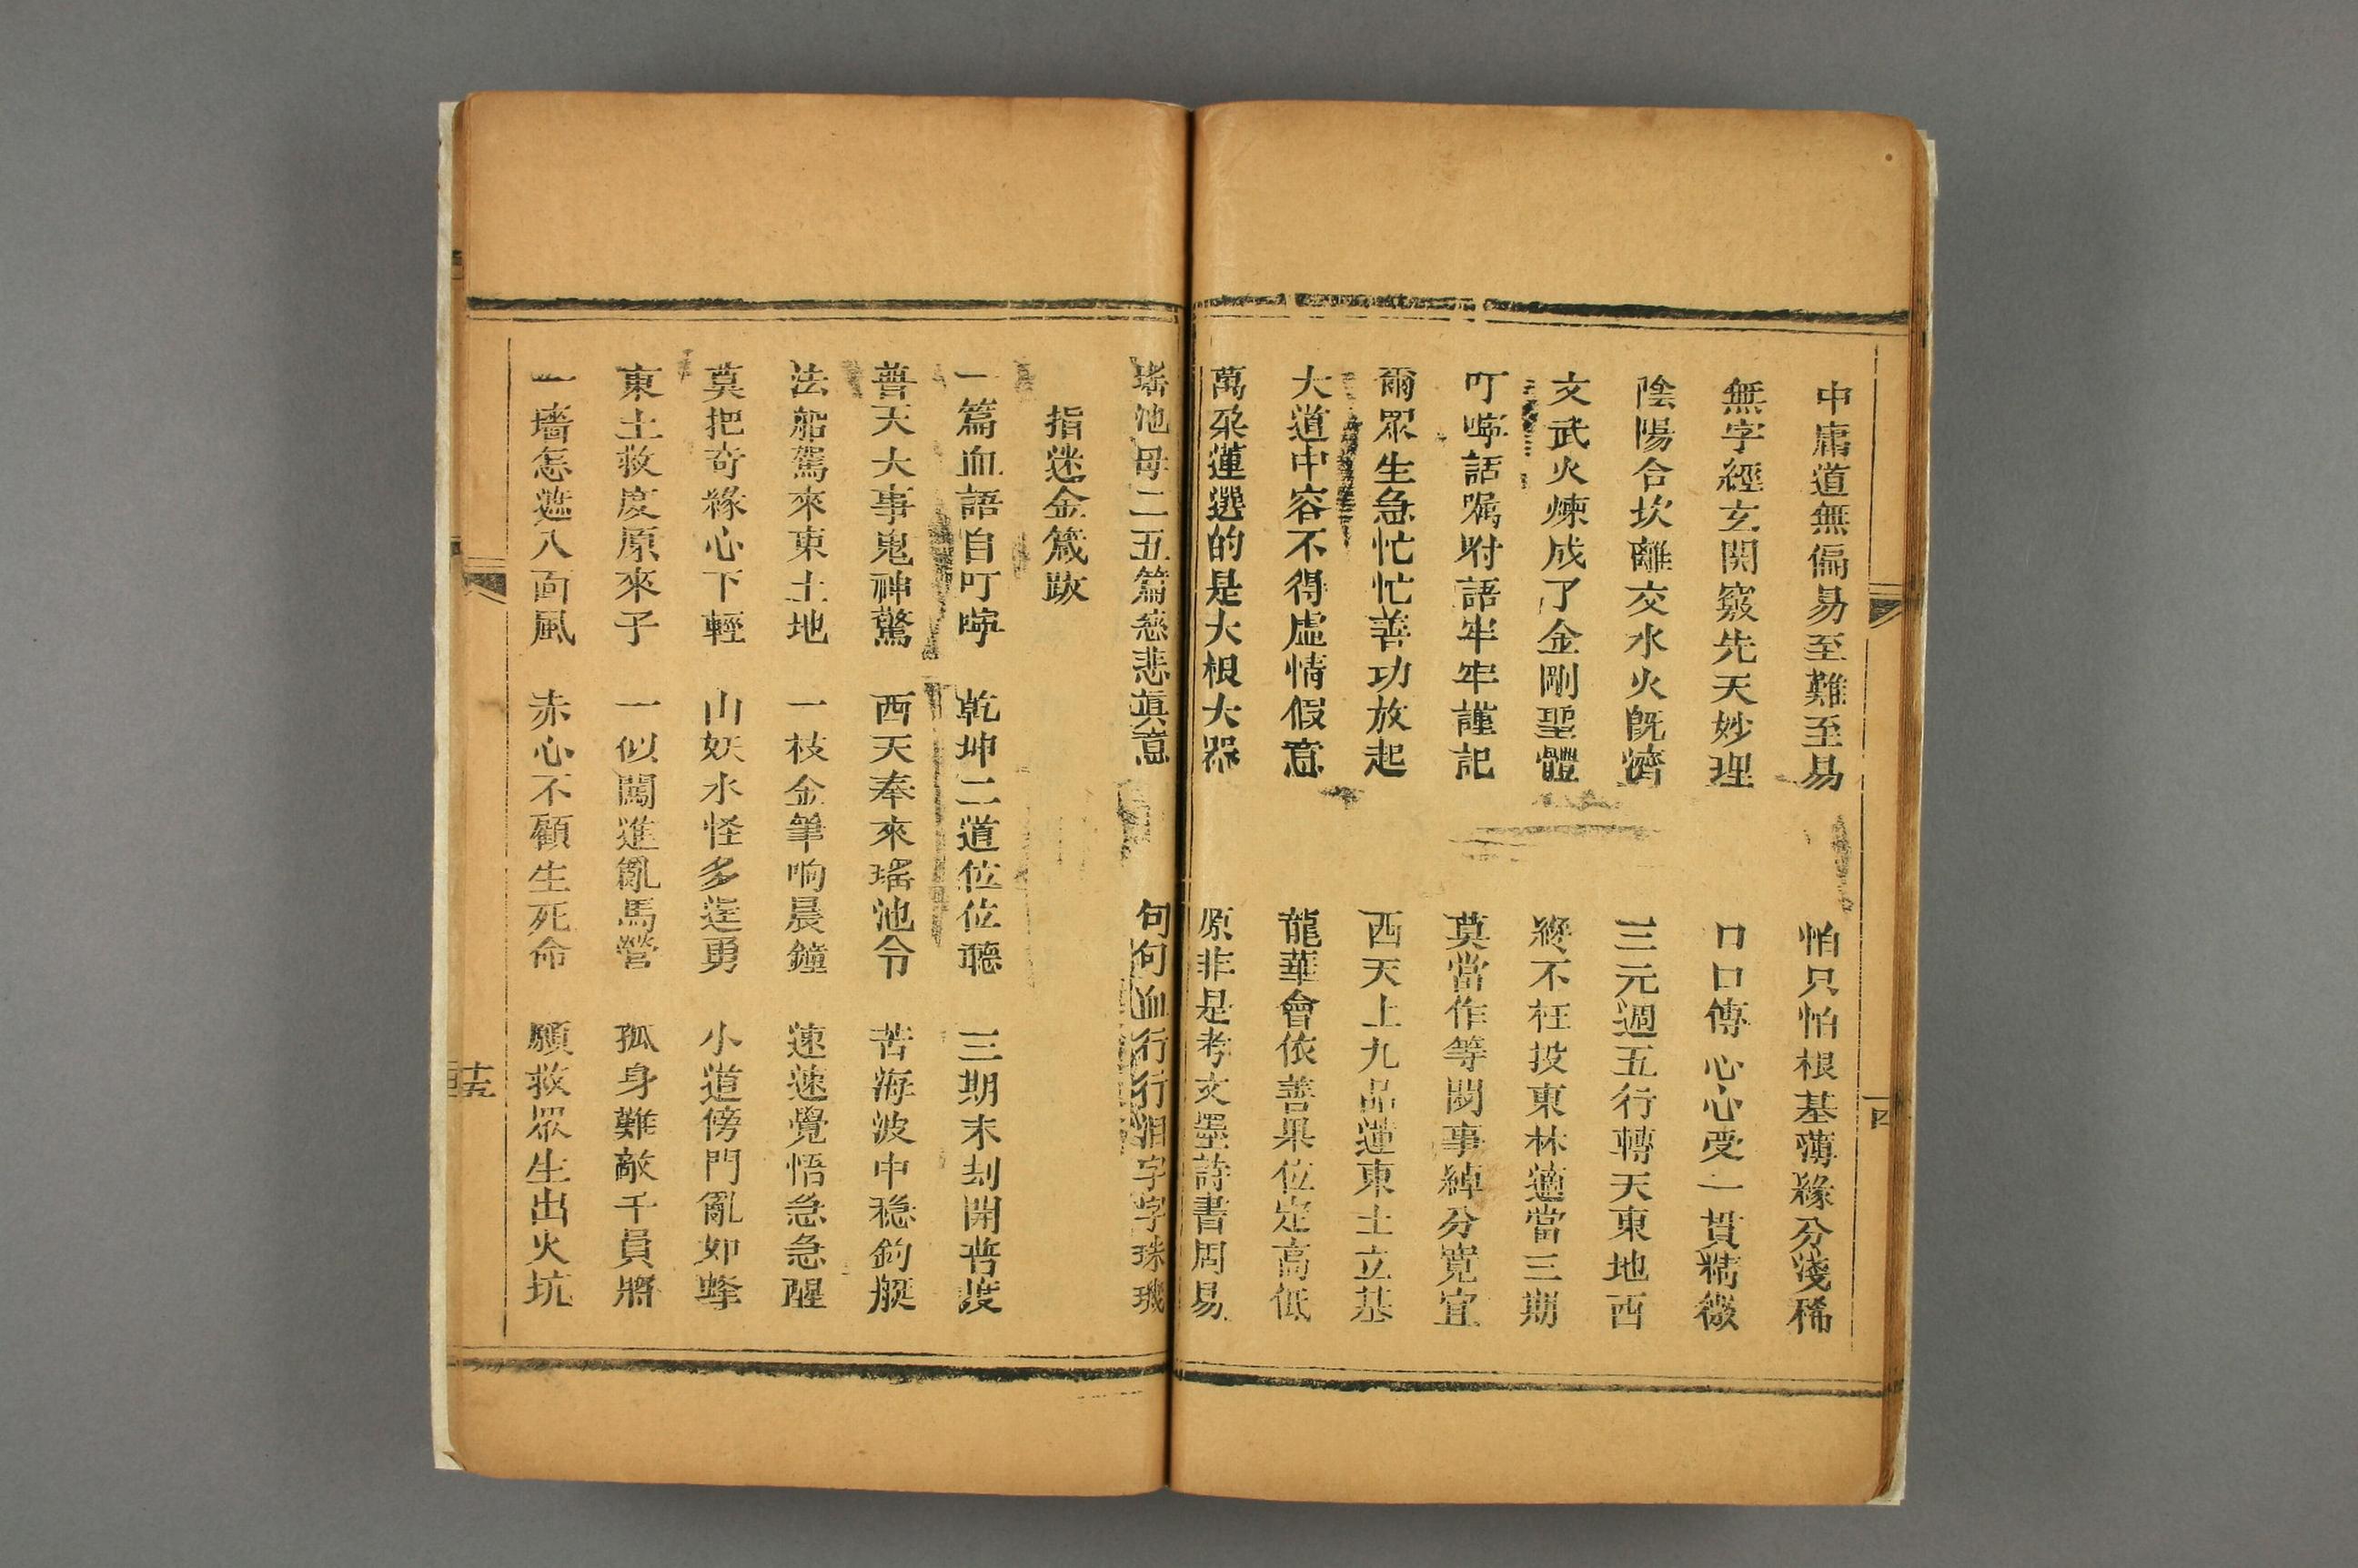 中庸道無偏易至難至易 怕只怕根基薄緣分淺稀
無字經玄開竅先天妙理 口口傳心心受一貫精微
陰陽合坎離交水火旣濟 三元週五行轉天東地西
文武火煉成了金剛聖體 終不枉投東林適當三期
叮嚀話嘱咐語牢牢謹記 莫當作等閑事綽分寬宜
爾眾生急忙忙善功放起 西天上九品蓮東土立基
大道中容不得虛情假意 龍華會依善果位定高低
萬朵蓮選的是大根大器 原非是考文墨詩書周易
一四
瑤池母二五篇慈悲眞意 句句血行行淚字字珠璣
指迷金箴跋
一篇血語自叮嚀 乾坤二道位位聽 三期末刦開普度
普天大事鬼神驚 西天奉來瑤池令 苦海波中穏釣艇
法船駕來東土地 一枝金筆响晨鐘 速速覺悟急急醒
莫把奇緣心下輕 山妖水怪多逞勇 小道傍門亂如蜂
東土救度原來子 一似闖進亂馬營 孤身難敵千員將
一墻怎遮八面風 赤心不顧生死命 願救眾生出火坑
十五